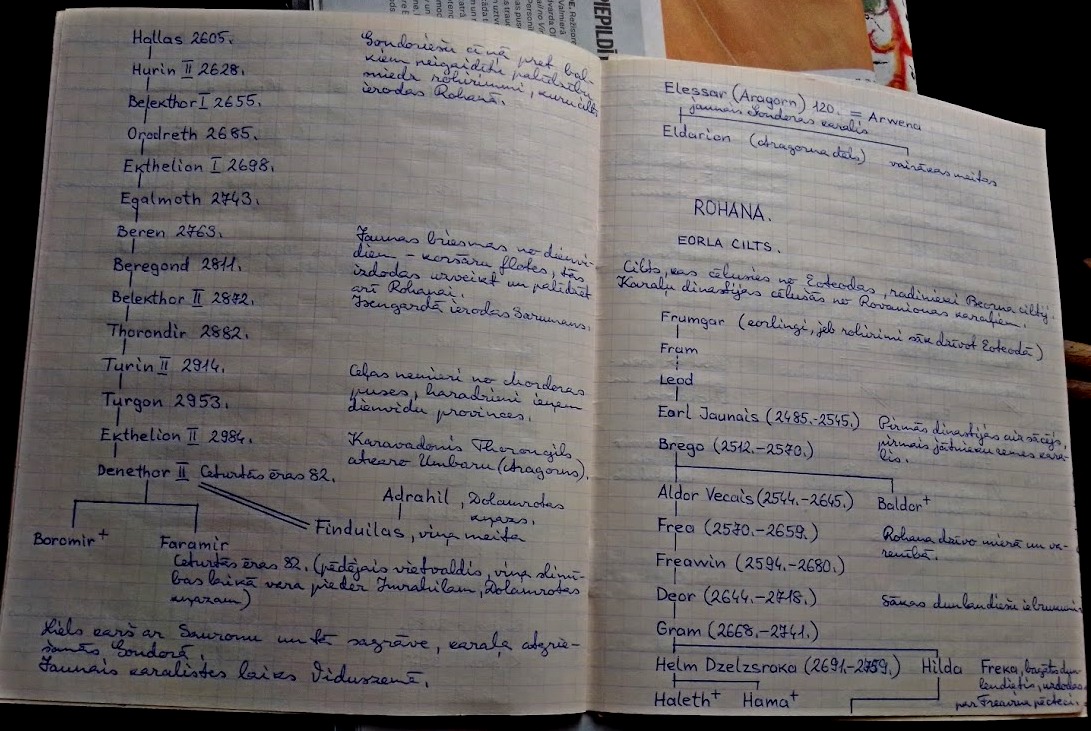 Hallas 2605.
Hurin II 2628.
Belekthor I 2655.
Orodreth 2685.
Ekthelion I 2698.
Egalmoth 2743.
Beren 2763.
Beregond 2811.
Belekthor II 2872.
Thorondir 2882.
Turin II 2914.
Turgon 2953.
Ekthelion II 2984.
Denethor II Ceturtās ēras 82.
Boromir+ Faramir
Ceturtās ēras 82. (pēdējais vietvaldis, viņa slimī-
bas laikā vara pieder Imrahilam, Dolamrotas
kņazam)
Gondoriešu cīņā pret bal-
neigaidītu palīdzību
sniedz rohirrimi, kuru cilts
ierodas Rohanā.
Jaunas briesmas no dienvi-
diem - korsāru flotes, tās
izdodas uzveikt un palīdzēt
arī Rohanai.
Isengardā ierodas Sarumans.
Ceļas nemieri no Mordoras
puses, haradrimi ieņem
dienvidu provinces.
Karavadonis Thorongils
atkaro Umbaru (Aragorns).
Adrahil, Dolamrotas
kņazs.
Finduilas, viņa meita
Liels karš ar Sauronu un tā sagrāve, karaļa atgrie-
šanās Gondorā.
Jaunais karalistes laiks Viduszemē.
PIEPILDĪ
Elessar (Aragorn) 120. = Arwena
jaunais Gondoras karalis
Eldarion (Aragorna dēls) vairākas meitas
ROHANA.
EORLA CILTS.
Cilts, kas cēlusies no Eoteodas, radinieki Beorna ciltij.
Karaļu dinastijas cēlušās no Rovanionas karaļiem.
Frumgar (eorlingi, jeb rohirimi sāk dzīvot Eoteodā)
Fram
Leod
Earl Jaunais (2485.-2545.) Pirmās dinastijas aizsācējs,
pirmais jātnieku zemes kara-
lis.
Brego (2512.-2570.)
Aldor Vecais (2544.-2645.) Baldor+
Frea (2570.-2659.) Rohana dzīvo mierā un va-
renībā.
Freawin (2594.-2680.)
Deor (2644.-2718.) Sākas dunlandiešu iebrukumi
Gram (2668.-2741.)
Helm Dzelzsroka (2691.-2759.) Hilda Freka, bagāts dun-
lendietis, uzdodas
par Freavina pēcteci.
Haleth+ Hama+